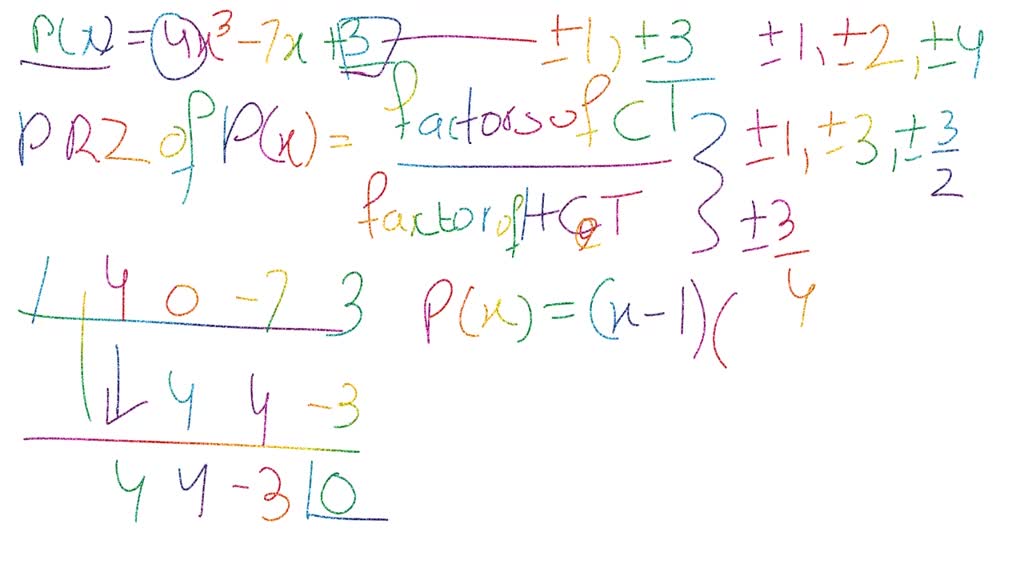 P(x) = 4x³ - 7x + 3 ±1, ±3 ±1, ±2, ±4
PRZ of P(x) = factors of CT / factor of HCT } ±1, ±3, ±3/2
±3/4
1 4 0 -7 3 P(x) = (x-1)(
4 4 -3
4 4 -3 0